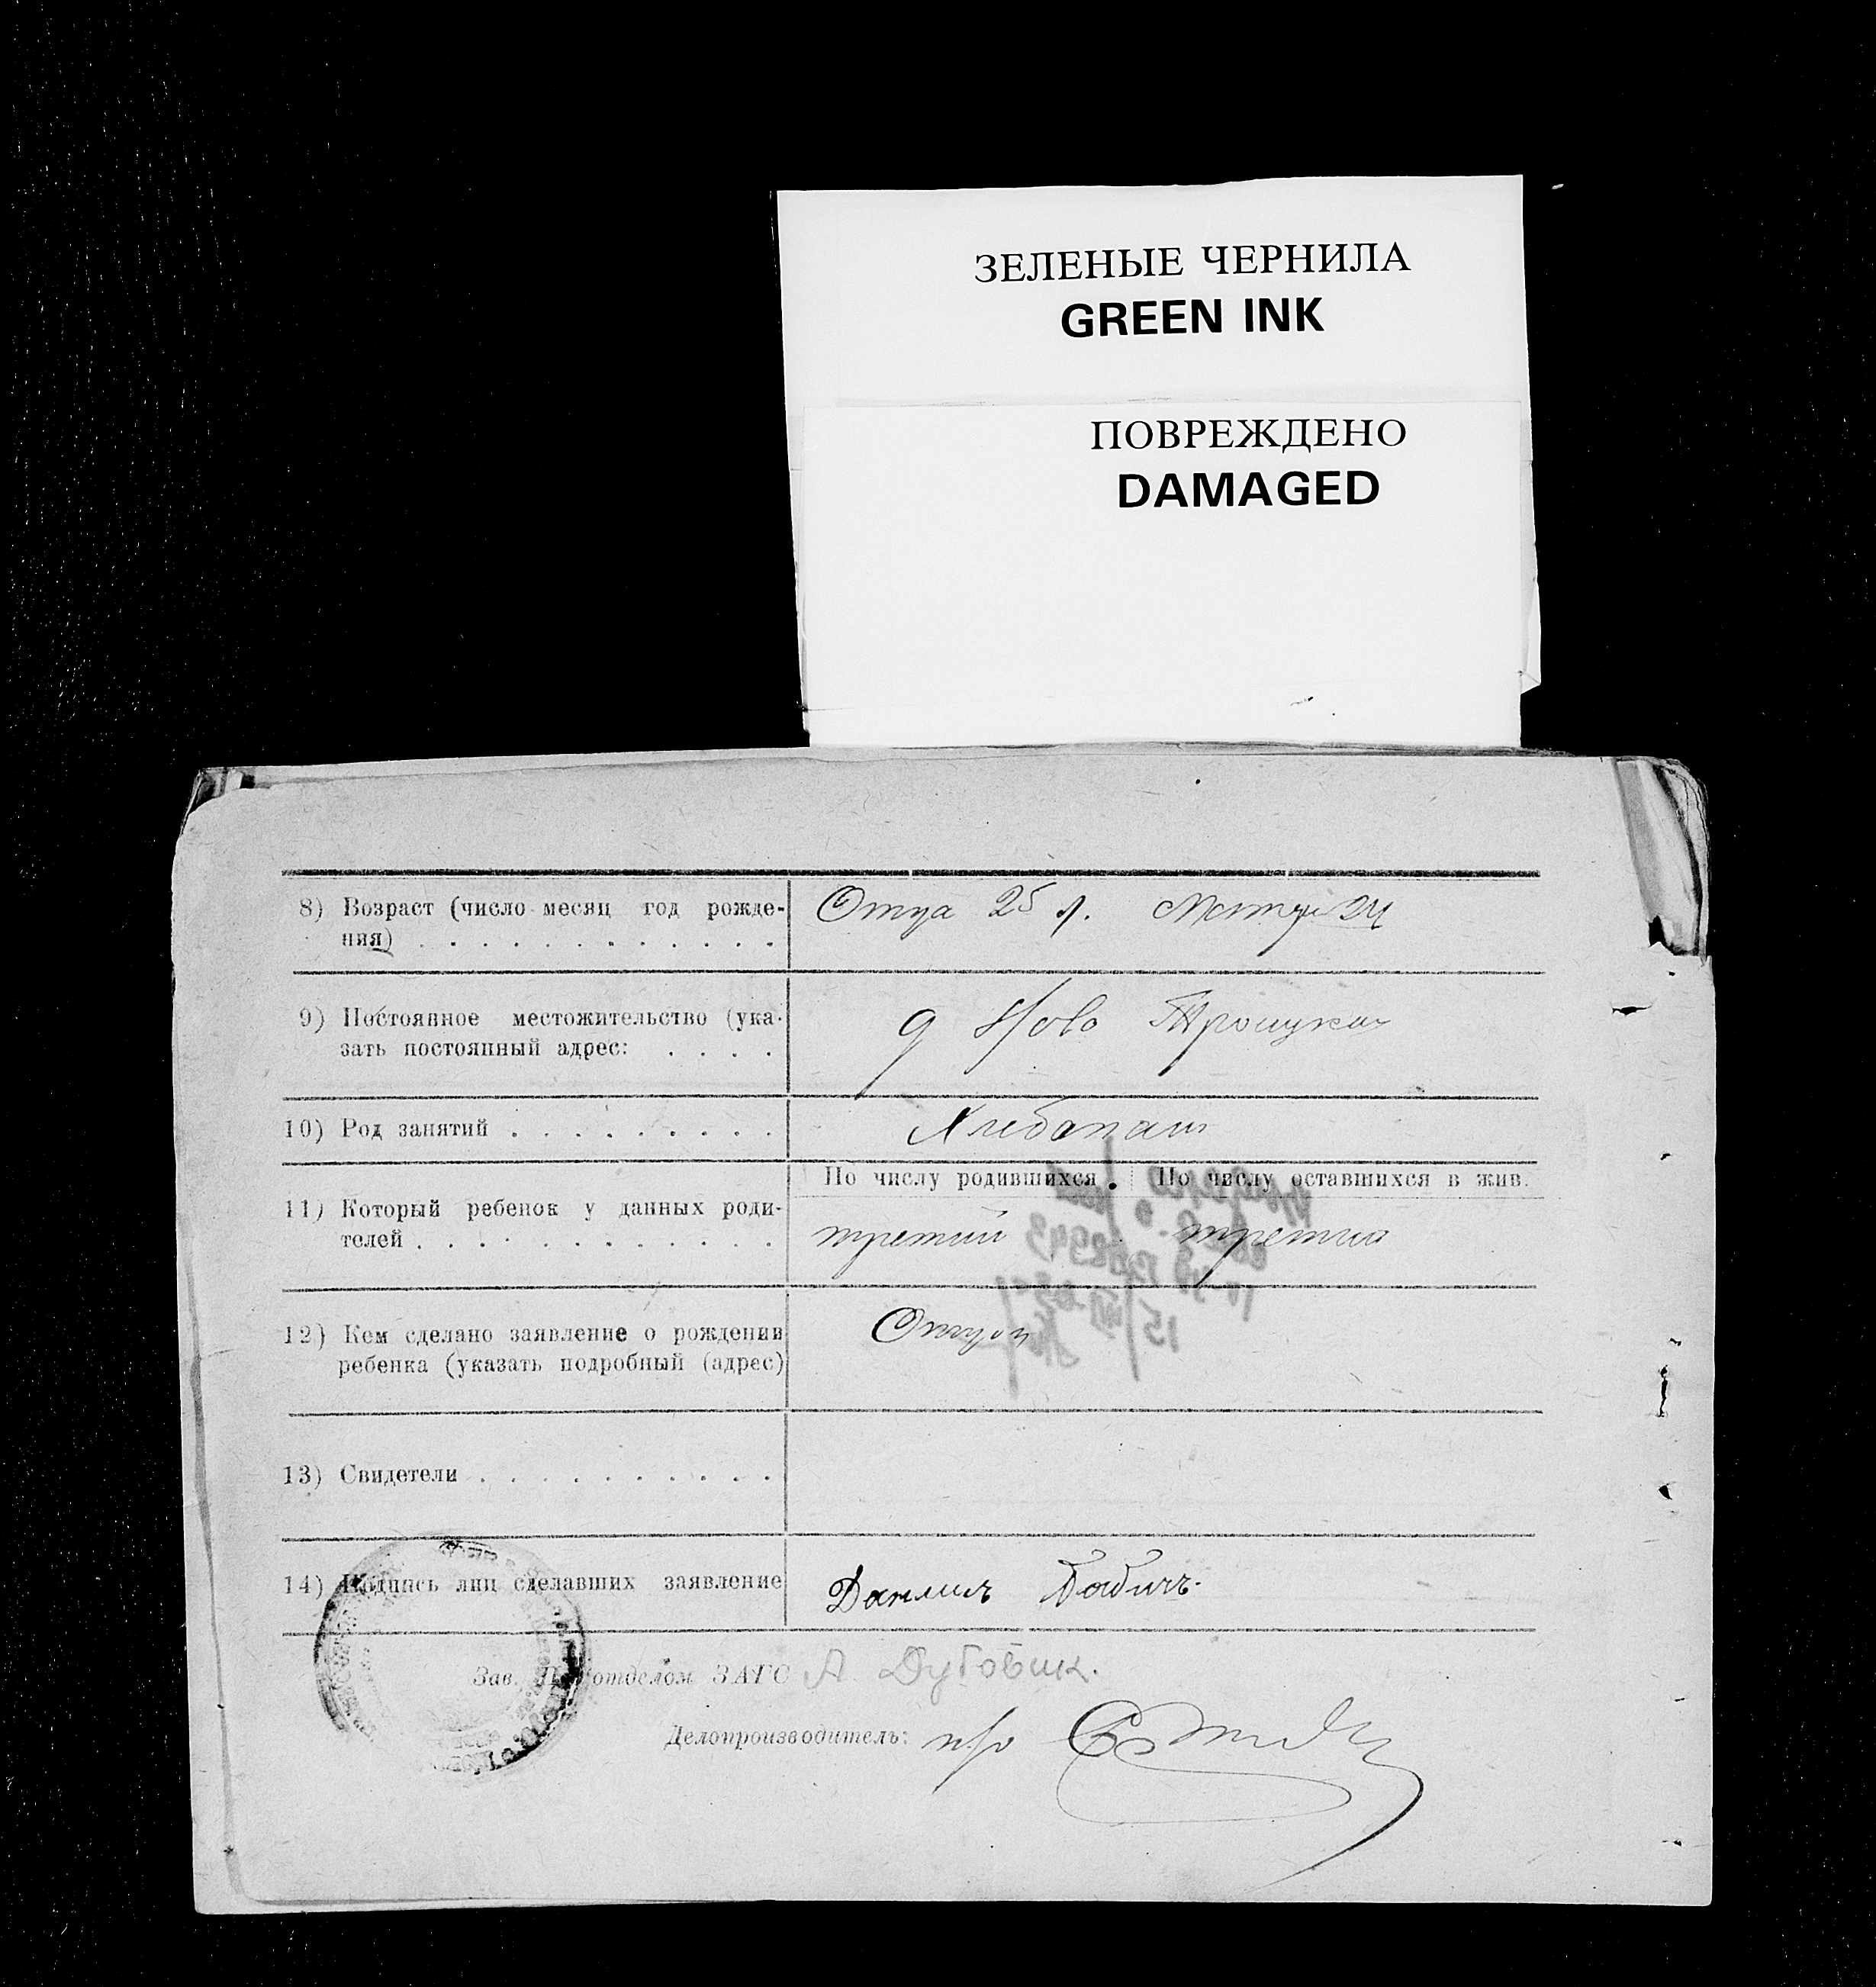 ЗЕЛЕНЫЕ ЧЕРНИЛА
GREEN INK
ПОВРЕЖДЕНО
DAMAGED
8) Возраст (число месяц год рожде-
ния) . . . . . . . . . . . .
Отца 25 л. Матери 24
9) Постоянное местожительство (ука-
зать постоянный адрес: . . . .
д Ново Троицкая
10) Род занятий . . . . . . . . .
Хлебопаш
По числу родившихся. По числу оставшихся в жив.
11) Который ребенок у данных роди-
телей . . . . . . . . . . . .
третий третий
12) Кем сделано заявление о рождении
ребенка (указать подробный (адрес)
Отцом
13) Свидетели . . . . . . . . . .
14) Подпись лиц сделавших заявление
Данилъ Бабичъ.
Зав. Подотделом ЗАГС А. Дубовик.
Делопроизводитель: